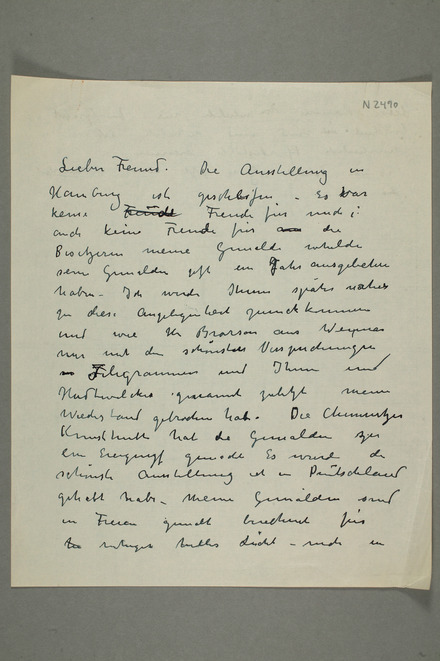 N 2490
Lieber Freund. Die Ausstellung in
Hamburg ist geschlossen – Es war
keine Freude für mich;
auch keine Freude für die
Besitzern meine Gemälde welche
sein Gemälden oft ein Jahr ausgeliehen
haben – Ich werde Ihnen später näher
zu diese Angelegenheit zurückkommen
und wie Hr Brorson aus Weimar
mir mit den schönsten Versprechungen
Telegrammen und Ihnen und
genannt meine
Wiederstand gebrochen hab. Die Chemnitzer
Kunsthütte hat die Gemälden
ein Ereigniss gemacht Es wurde die
schönste Ausstellung ich in Deutschland
gehabt habe – Meine Gemälden sind
im Freien gemalt berechnet für
ruhiges helles Licht – nicht in